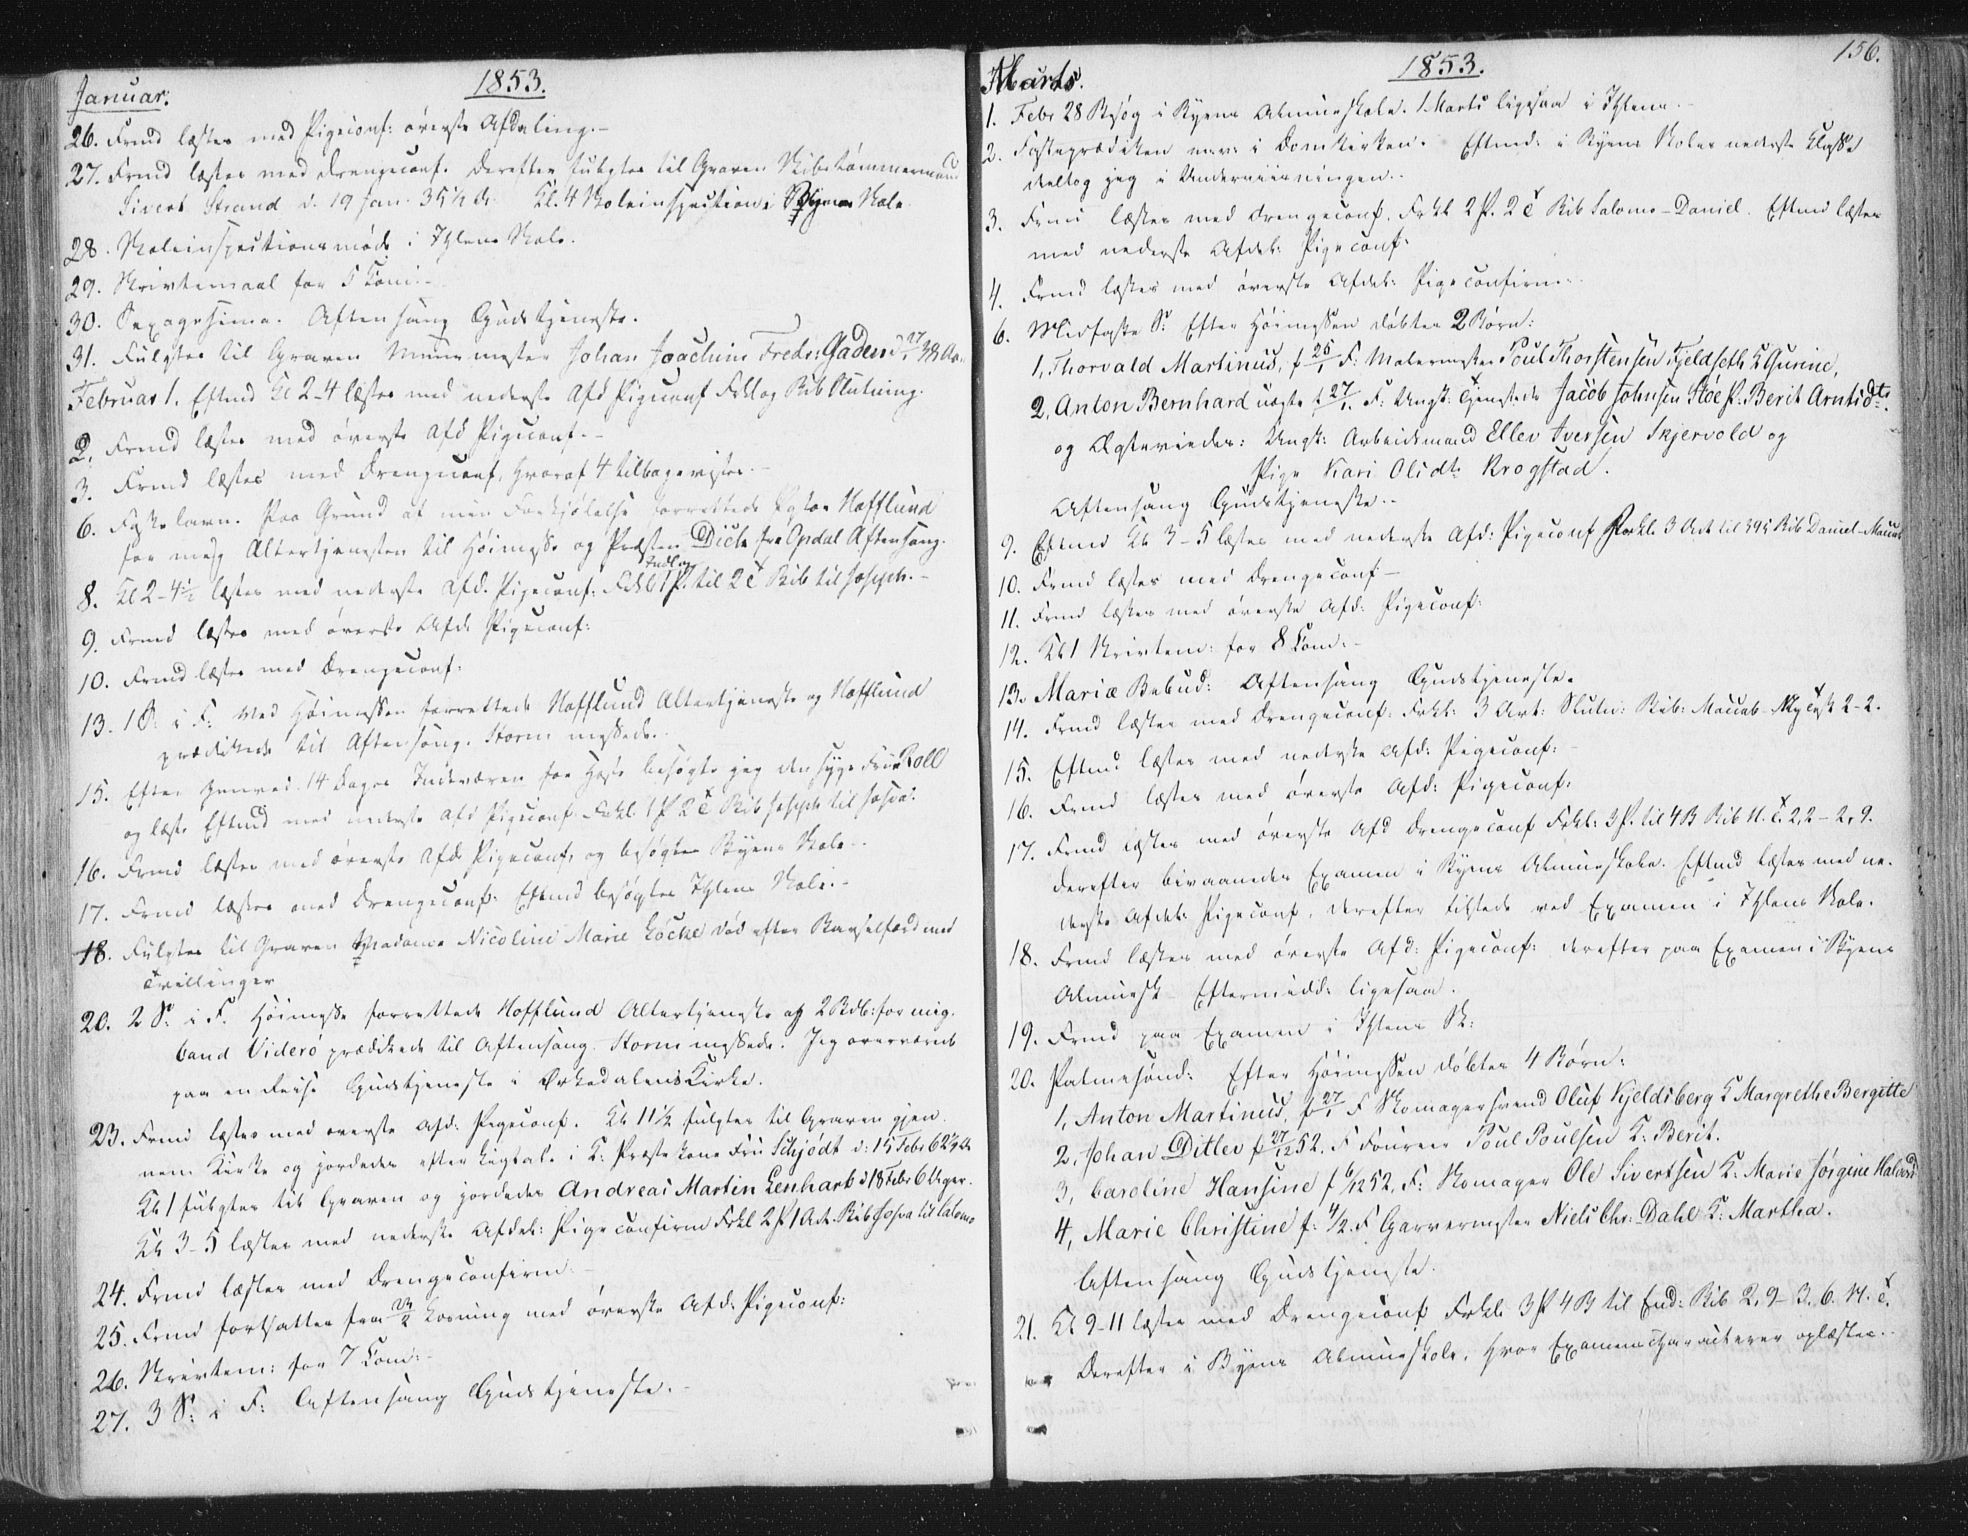 Januar. 1853.
26. Frmd læstes med Pigeconf: øverste Afdeling.-
27. Frmd læstes med Drengeconf. Derefter fulgtes til Graven Skibstømmermand
Sivert Strand d. 19 Jan. 35½ A. Kl. 4 Skoleinspection i Byens Skole.
28. Skoleinspectionsmøde i Ihlens Skole.
29. Skriftemaal for 5 Com:-
30. Sexagesima. Aftensang Gudstjeneste.
31. Fulgtes til Graven Muurmester Johan Joachim Fredr: Gaden d 27/1 38 Aar.
Februar 1. Eftmd Kl 2-4 læstes med nederste Afd Pigeconf Frkl og Bib Slutning.
2. Frmd læstes med øverste Afd Pigeconf.-
3. Frmd læstes med Drengeconf, hvoraf 4 tilbageviste.-
6. Fastelavn. Paa Grund af min Forkjølelse forrettede Pastor Hofflund
for mig Altertjenesten til Høimesse og Præsten Dick fra Opdal Aftensang.
8. Kl 2-4½ læstes med nederste Afd. Pigeconf: Frkl Indl og 1 P. til 2 C Bib til Joseph.-
9. Frmd læstes med øverste Afd. Pigeconf:
10. Frmd læstes med Drengeconf:
13. 1 S. i F: Ved Høimessen forrettede Hofflund Altertjeneste og Hofflund
prædikede til Aftensang. Storm messede.
15. Efter henved 14 Dages Indeværen for Hæse besøgte jeg den syge Frue Roll
og læste Eftmd med nederste Afd Pigeconf. Frkl. 1 P 2 C Bib Joseph til Josva.
16. Frmd læstes med øverste Afd. Pigeconf, og besøgtes Byens Skole.-
17. Frmd læstes med Drengeconf: Eftmd besøgtes Ihlens Skole.-
18. Fulgtes til Graven Madame Nicoline Marie Løcke død efter Barselfærd med
Tvillinger
20. 2 S: i F. Høimesse forrettede Hofflund Altertjeneste og 2 Bdb: for mig.
Cand Viderø prædikede til Aftensang. Storm messede. Jeg overværede
paa en Reise Gudstjeneste i Ørkedalens Kirke.
23. Frmd læstes med øverste Afd: Pigeconf. Kl 11½ fulgtes til Graven gjen
nem Kirke og jordedes efter Ligtale i K: Præstekone Fru Schjødt d: 15 Febr 62½ A
Kl 1 fulgtes til Graven og jordedes Andreas Martin Lenhart d 18 Febr 6 Uger.
Kl 3-5 læstes med nederste Afdel: Pigeconfirm Frkl 2 P 1 Art. Bib Josva til Salomo
24. Frmd læstes med Drengeconfirm.-
25. Frmd fortsattes fra 23/2 Læsning med øverste Afd: Pigeconf:
26. Skriftem: for 7 Com:-
27. 3 S: i F: Aftensang Gudstjeneste.-
Marts. 1853. 156.
1. Febr 28 Besøg i Byens Almueskole. 1 Marts ligesaa i Ihlens.-
2. Fasteprædiken m.v. i Domkirken. Eftmd: i Byens Skoles nederste Klasse
deeltog jeg i Underviisningen.-
3. Frmd læstes med Drengeconf. Frkl 2 P. 2 C Bib Salomo-Daniel. Eftmd læstes
med nederste Afdel: Pigeconf:
4. Frmd læstes med øverste Afdel: Pigeconfirm:-
6. Midfaste S: Efter Høimessen døbtes 2 Børn:
1, Thorvald Martinus, f 25/1 F: Malermester Poul Thorstensen Fjeldseth K Gurine,
2, Anton Bernhard uægte f 27/1. F: Ungk: Tjenestede Jacob Johnsen Støe P: Berit Arntsdt.
og Ægteviedes: Ungk: Arbeidsmand Ellev Iversen Skjervold og
Pige Kari Olsdt: Krogstad.
Aftensang Gudstjeneste.-
9. Eftmd Kl 3-5 læstes med nederste Afd: Pigeconf Forkl. 3 Art til Bib Daniel-Maccab
10. Frmd læstes med Drengeconf-
11. Frmd læstes med øverste Afd: Pigeconf:
12. Kl 1 Skriftem: for 8 Com:-
13. Mariæ Bebud: Aftensang Gudstjeneste.
14. Frmd læstes med Drengeconf: Frkl: 3 Art: Slutn: Bib: Maccab-Ny Test 2-2.
15. Eftmd læstes med nederste Afd: Pigeconf:-
16. Frmd læstes med øverste Afd: Pigeconf:
17. Frmd læstes med øverste Afd Drengeconf Frkl: 3 P. til 4 B Bib N. T. 2,2-2,9.
derefter bivaanedes Examen i Byens Almueskole. Eftmd læstes med ne-
derste Afdel: Pigeconf, derefter tilstede ved Examen i Ihlens Skole.
18. Frmd læstes med øverste Afd: Pigeconf: derefter paa Examen i Byens
Almuesk Eftermidd: ligesaa.
19. Frmd paa Examen i Ihlens Sk:
20. Palmesønd: Efter Høimessen døbtes 4 Børn:
1, Anton Martinus, f 27/1 F Skomagersvend Oluf Kjeldsberg K Margrethe Bergitte
2, Johan Ditlev f 27/12 52. F Foureer Poul Poulsen K: Berit.
3, Caroline Hansine f 6/12 52, F: Skomager Ole Sivertsen K. Marie Jørgine Halvorsd
4, Marie Christine f: 4/2. F Garvermester Niels Chr: Dahl K: Martha.
Aftensang Gudstjeneste.
21. Kl 9-11 læstes med Drengeconf Frkl. 3 P 4 B til End: Bib 2,9-3,6. N. T.
Derefter i Byens Almueskole, hvor Examenscharacterer oplæstes.-